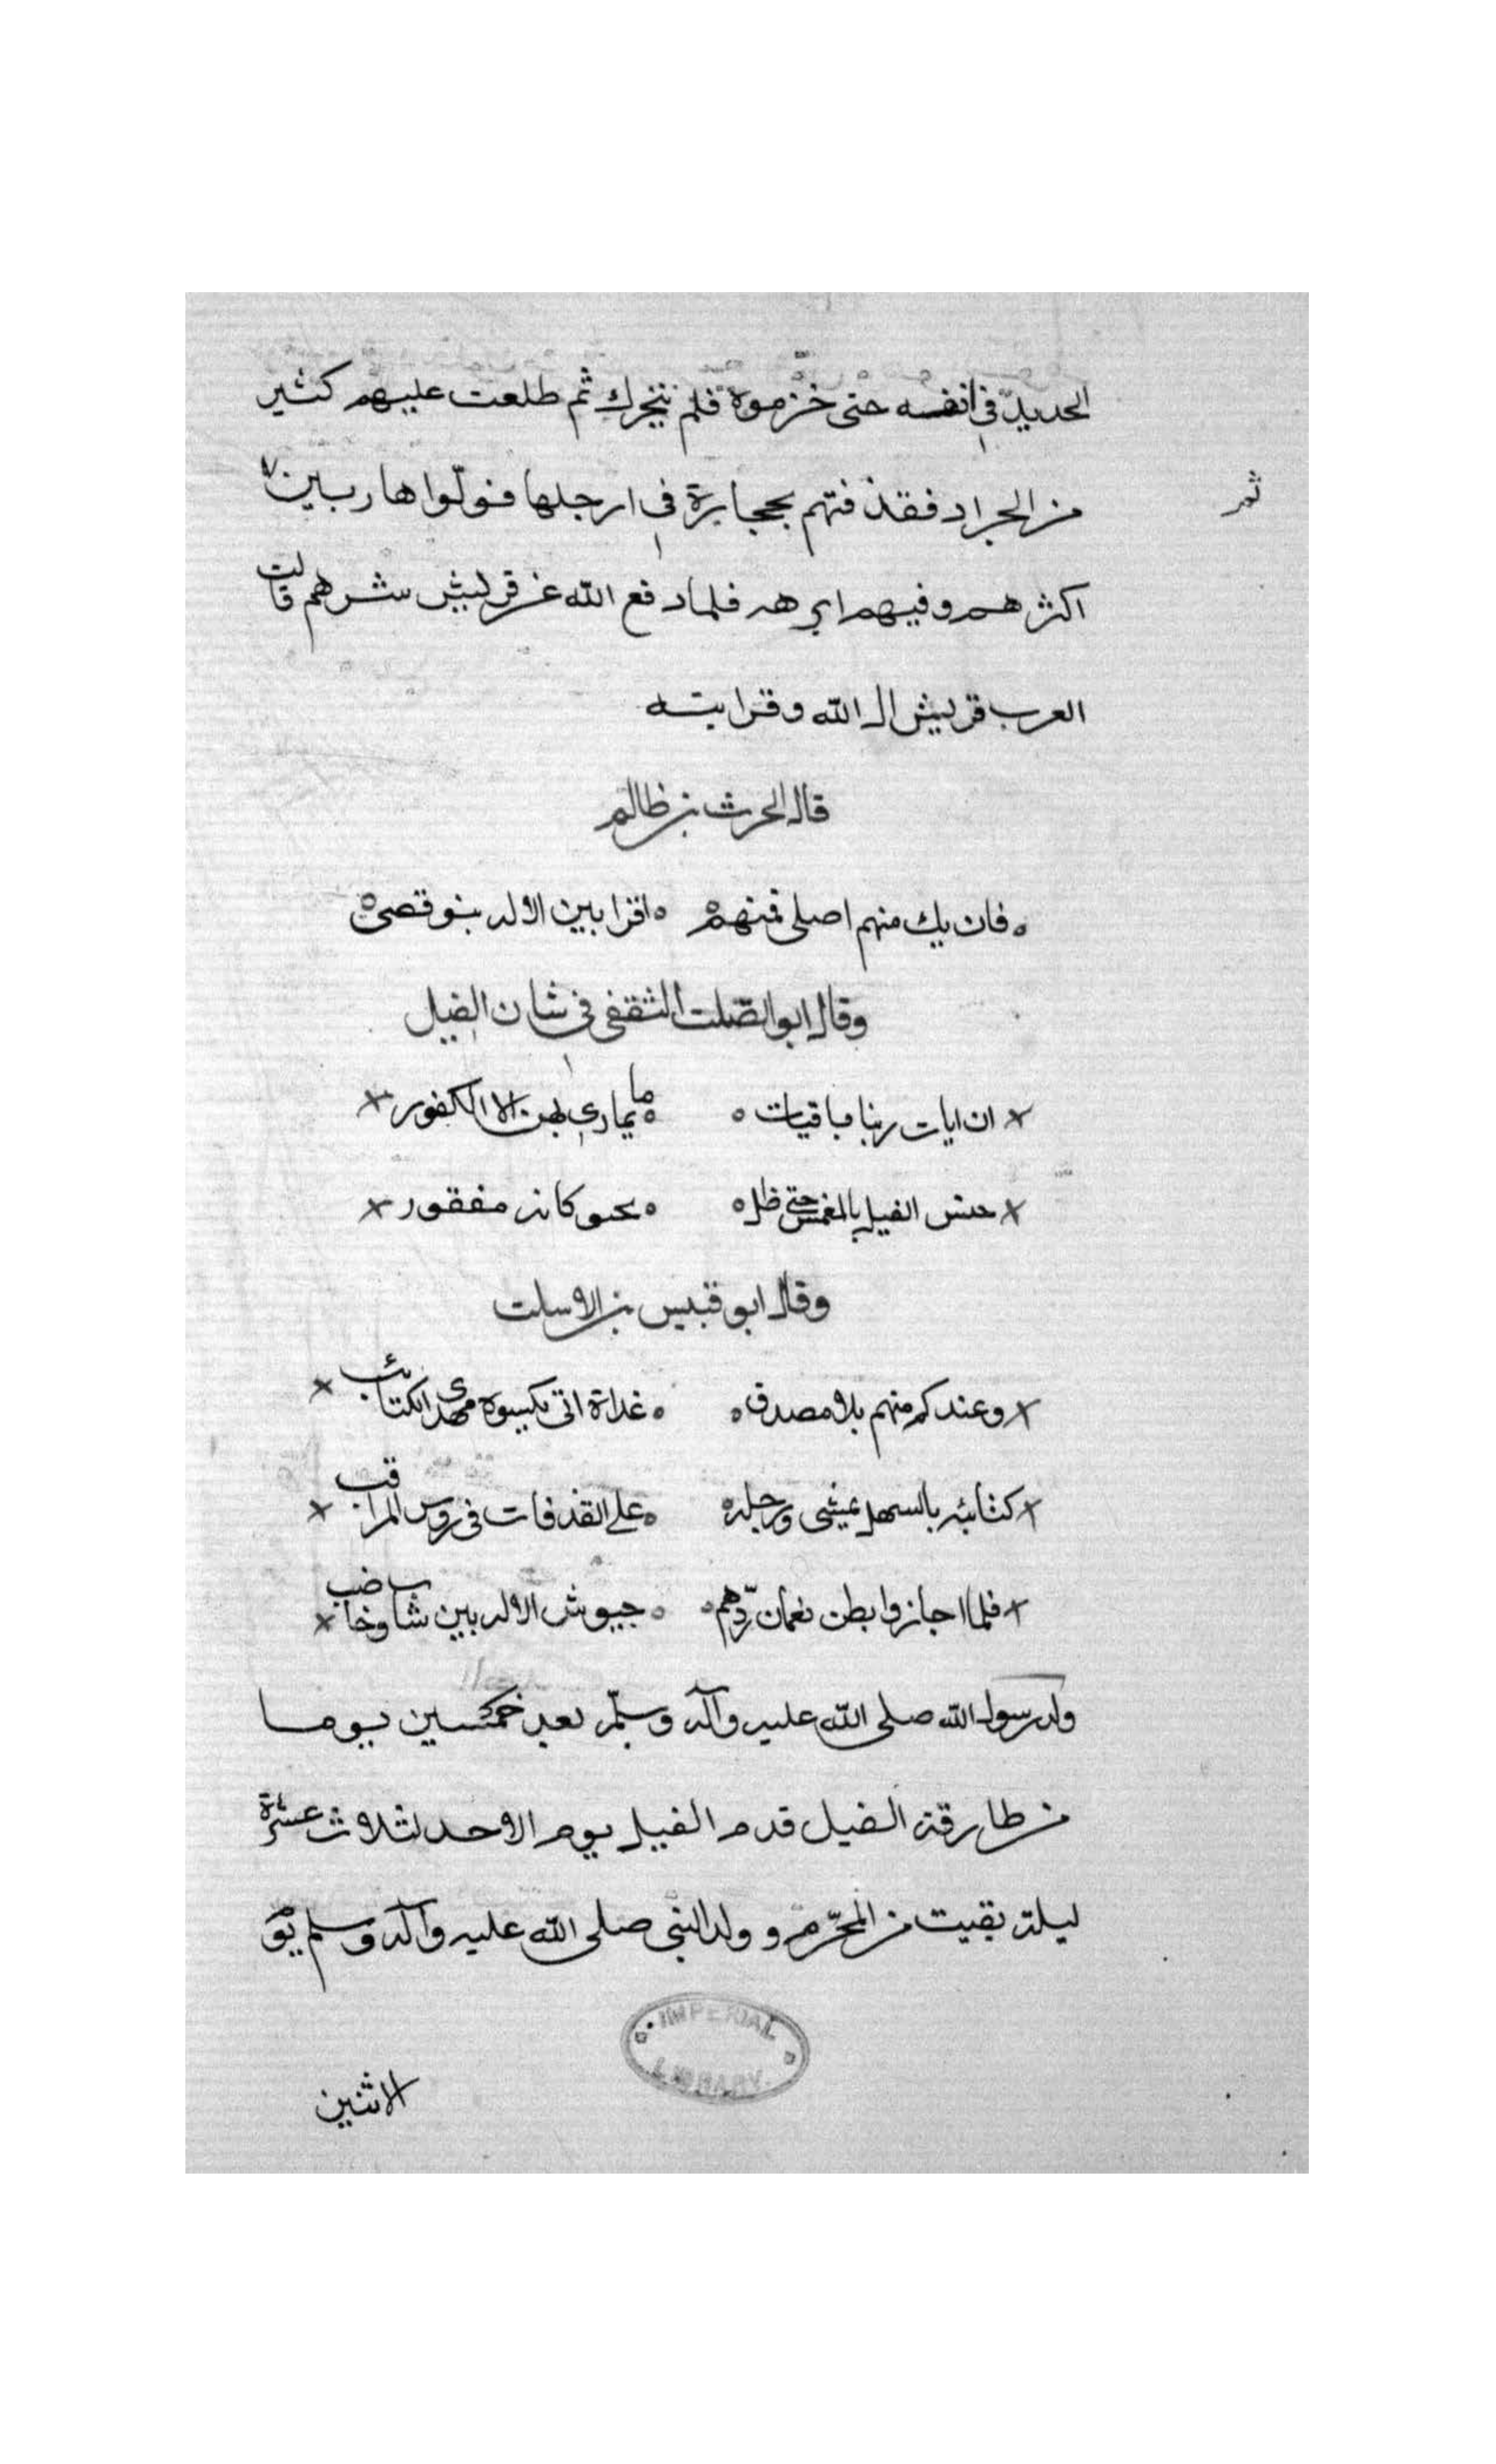 الحديد في انفسه حتى خزموه فلم يتحرك ثم طلعت عليهم كثير
من الجراد فقذفتهم بحجارة في ارجلها فولّوا هاربين
ثمر
اكثرهم وفيهم ابرهه فلما دفع الله عن قريش شرهم قالت
العرب قريش ال الله وقرابته
قال الحرث بن ظالم
فان يك منهم اصلي فمنهم اقرابين الاله بنو قصي
وقال ابو الصّلت الثقفي في شان الفيل
ان ايات ربنا باقيات ما يماري بهن الا الكفور
حبس الفيل بالمغمس حتى ظل يحبو كانه مفقور
وقال ابو قيس بن الاسلت
وعندكم منهم بلاء مصدق غداة اتى يكسوه مهدى الكتائب
كتائبه بالسهل يمشي ورجله على القذفات في روس المراقب
فلما اجازوا بطن نعمان ردّهم جيوش الاله بين ساف وخاضب
ولد رسول الله صلى الله عليه وآله وسلّم بعد خمسين يوما
من طارقة الفيل قدم الفيل يوم الاحد لثلاث عشرة
ليلة بقيت من المحرّم و ولد النبي صلى الله عليه وآله وسلم يوم
IMPERIAL LIBRARY
الاثنين